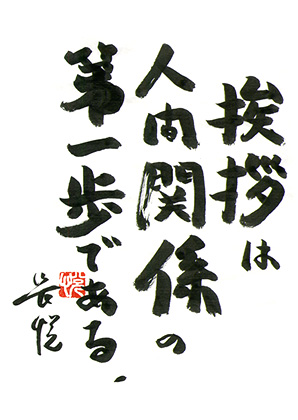 挨拶は
人間関係の
第一歩である、